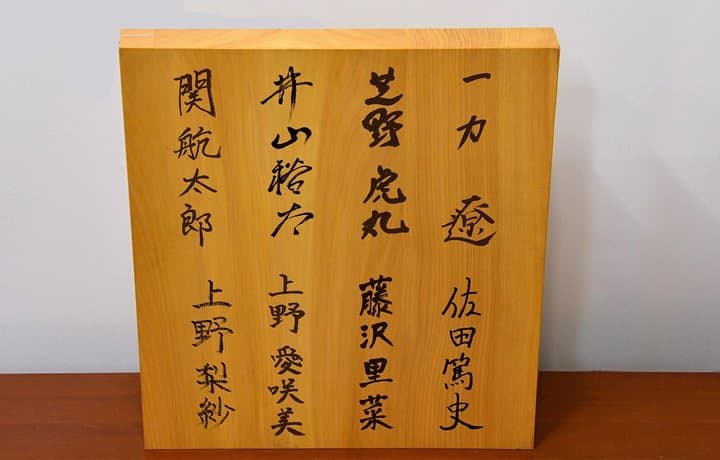 一力 遼
佐田篤史
芝野虎丸
藤沢里菜
井山裕太
上野愛咲美
関航太郎
上野梨紗